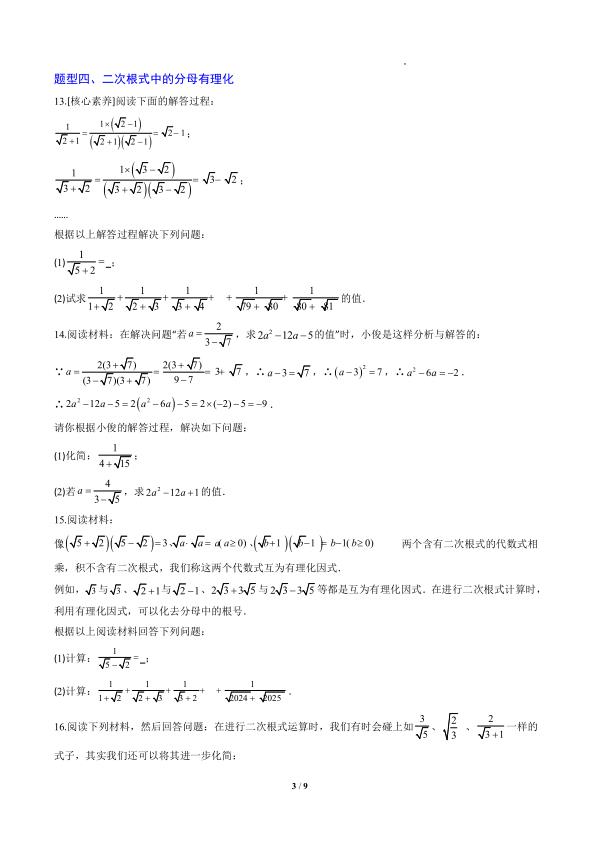 题型四、二次根式中的分母有理化
13.[核心素养]阅读下面的解答过程：
1/(√2+1)=1×(√2−1)/((√2+1)(√2−1))=√2−1；
1/(√3+√2)=1×(√3−√2)/((√3+√2)(√3−√2))=√3−√2；
......
根据以上解答过程解决下列问题：
(1) 1/(√5+2)=_；
(2)试求 1/(1+√2)+1/(√2+√3)+1/(√3+√4)+ +1/(√79+√80)+1/(√80+√81) 的值．
14.阅读材料：在解决问题“若a=2/(3−√7)，求2a²−12a−5的值”时，小俊是这样分析与解答的：
∵a=2(3+√7)/((3−√7)(3+√7))=2(3+√7)/(9−7)=3+√7，∴a−3=√7，∴(a−3)²=7，∴a²−6a=−2．
∴2a²−12a−5=2(a²−6a)−5=2×(−2)−5=−9．
请你根据小俊的解答过程，解决如下问题：
(1)化简：1/(4+√15)；
(2)若a=4/(3−√5)，求2a²−12a+1的值．
15.阅读材料：
像(√5+√2)(√5−√2)=3、√a·√a=a(a≥0)、(√b+1)(√b−1)=b−1(b≥0) 两个含有二次根式的代数式相
乘，积不含有二次根式，我们称这两个代数式互为有理化因式．
例如，√3与√3、√2+1与√2−1、2√3+3√5与2√3−3√5等都是互为有理化因式．在进行二次根式计算时，
利用有理化因式，可以化去分母中的根号．
根据以上阅读材料回答下列问题：
(1)计算：1/(√5−√2)=_；
(2)计算：1/(1+√2)+1/(√2+√3)+1/(√3+2)+ +1/(√2024+√2025)．
16.阅读下列材料，然后回答问题：在进行二次根式运算时，我们有时会碰上如3/√5、√(2/3)、2/(√3+1)一样的
式子，其实我们还可以将其进一步化简：
3 / 9